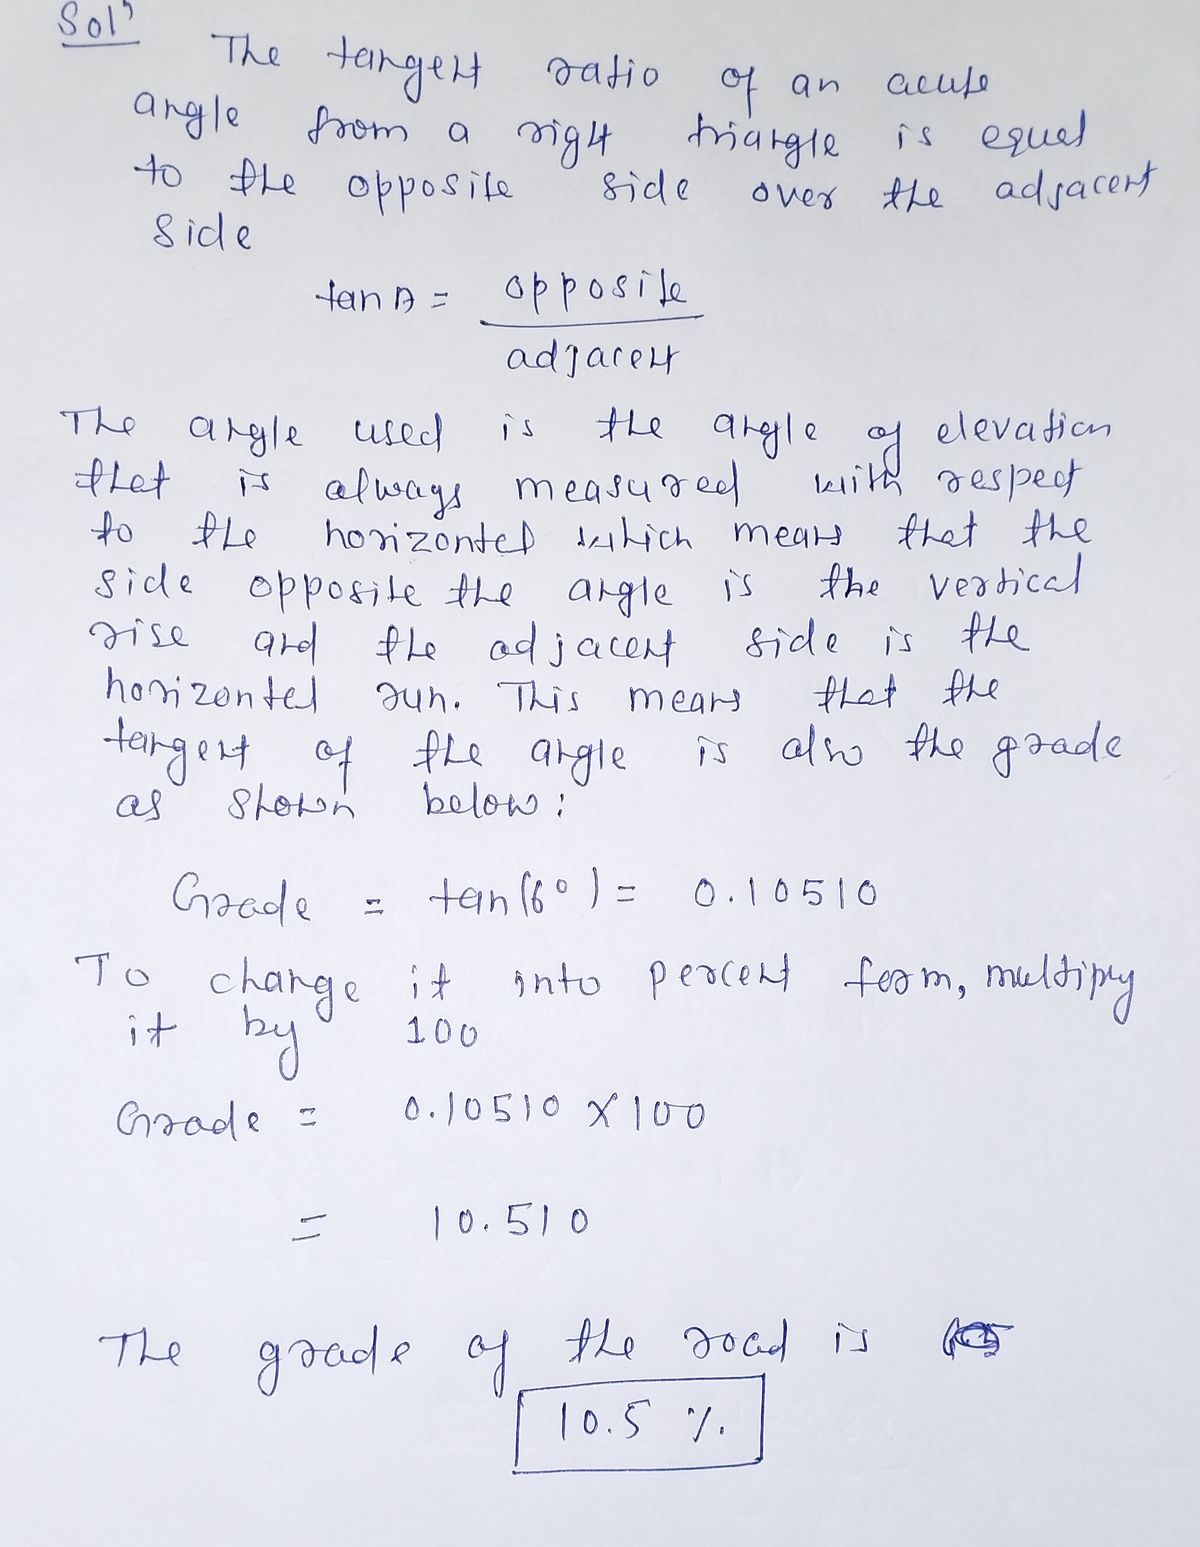 Solⁿ
The tangent ratio of an acute
angle from a right triangle is equal
to the opposite side over the adjacent
side
tan A = opposite
adjacent
The angle used is the angle of elevation
that is always measured with respect
to the horizontal which means that the
side opposite the angle is the vertical
rise and the adjacent side is the
horizontal run. This means that the
tangent of the angle is also the grade
as shown below:
Grade = tan(6°) = 0.10510
To change it into percent form, multiply
it by 100
Grade = 0.10510 × 100
= 10.510
The grade of the road is
10.5 %.